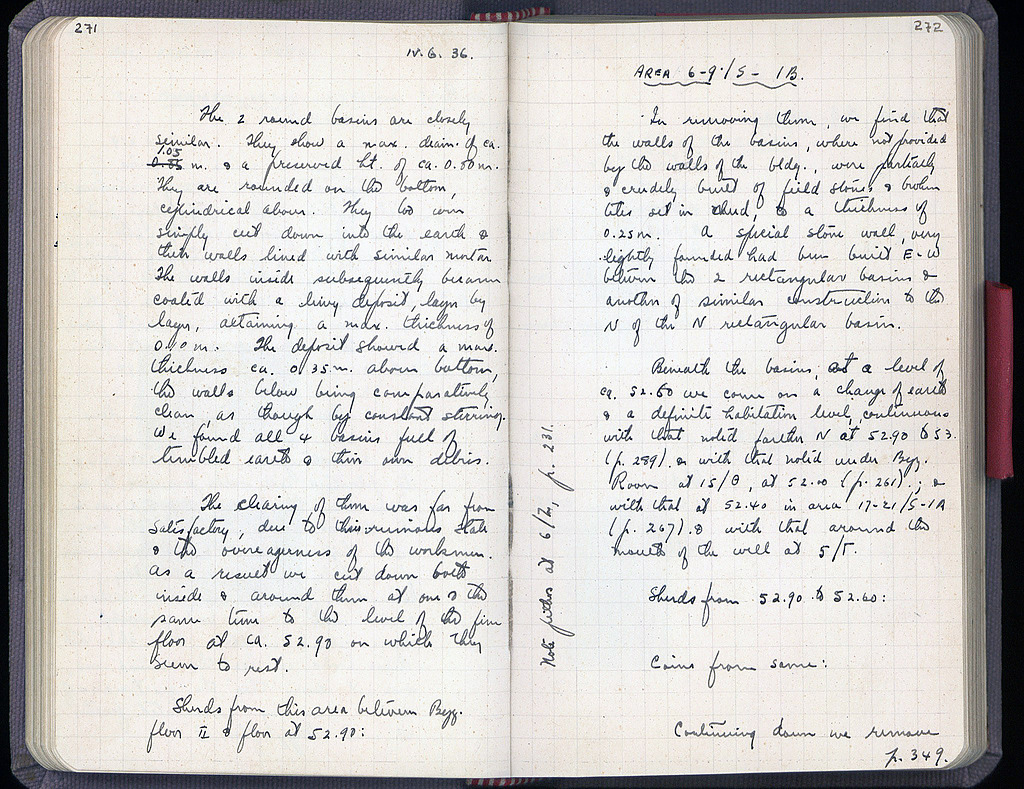 271
IV. 6. 36.
The 2 round basins are closely
similar. They show a max. diam. of ca.
1.05
m. & a preserved ht. of ca. 0.80 m.
They are rounded on the bottom,
cylindrical above. They too were
simply cut down into the earth &
their walls lined with similar mortar.
The walls inside subsequently became
coated with a limy deposit, layer by
layer, attaining a max. thickness of
m. The deposit showed a max.
thickness ca. 0.35 m. above bottom,
the walls below being comparatively
clean, as though by constant stirring.
We found all 4 basins full of
tumbled earth & their own debris.
The clearing of them was far from
satisfactory, due to their ruinous state
& the overeagerness of the workmen.
As a result we cut down both
inside & around them at one & the
same time to the level of the fine
floor at ca. 52.90 on which they
seem to rest.
Sherds from this area between Byz.
floor II & floor at 52.90:
272
AREA 6-9/S - IB.
In removing them, we find that
the walls of the basins, where not provided
by the walls of the bldg., were partially
& crudely built of field stones & broken
tiles set in mud, to a thickness of
0.25 m. A special stone wall, very
lightly founded had been built E-W
between the 2 rectangular basins &
another of similar construction to the
N of the N rectangular basin.
Beneath the basins, at a level of
ca. 52.60 we come on a change of earth
& a definite habitation level, continuous
with that noted farther N at 52.90 to 53.
(p. 289). & with that noted under Byz.
Room at 15/Θ, at 52.00 (p. 261).; &
with that at 52.40 in area 17-21/S-IA
(p. 267). & with that around the
mouth of the well at 5/T.
Sherds from 52.90 to 52.60:
Coins from same:
Continuing down we remove
p. 349.
Note pithos at 6/Z, p. 231.